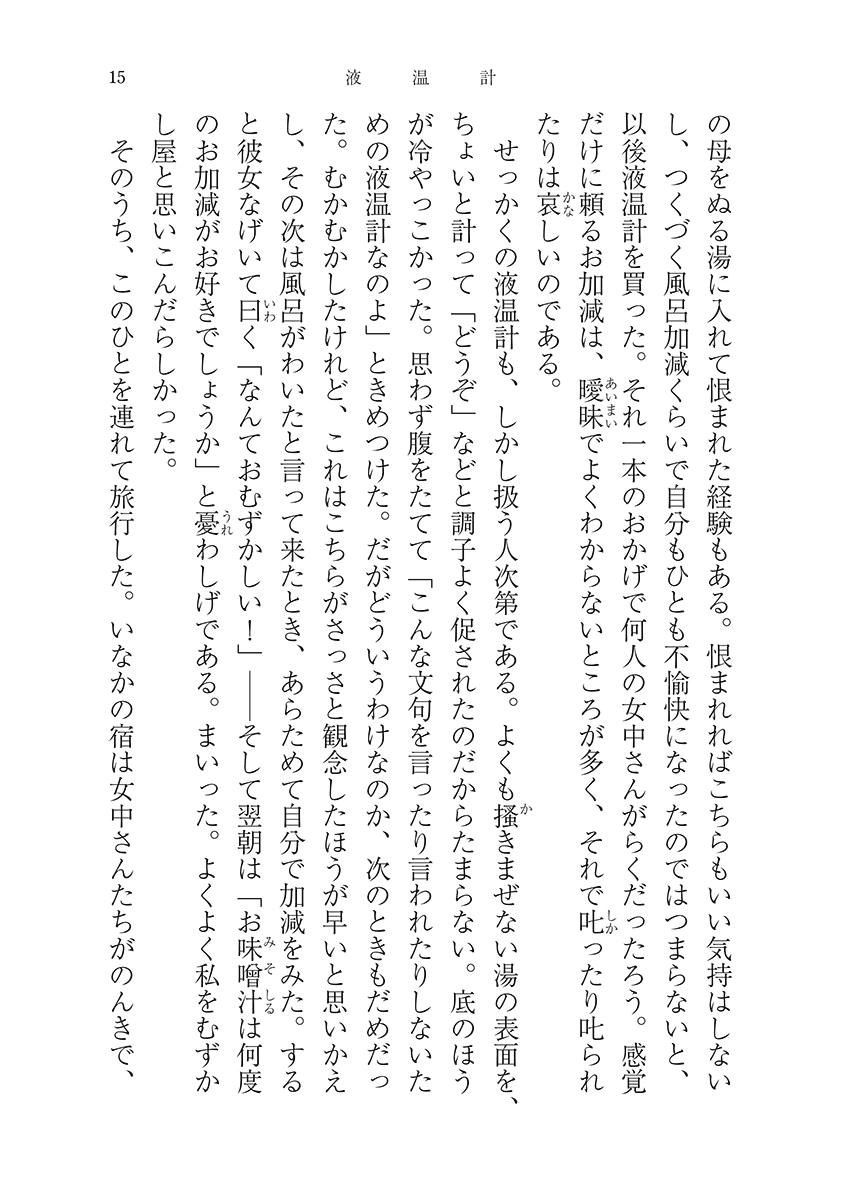 15
液温計
の母をぬる湯に入れて恨まれた経験もある。恨まれればこちらもいい気持はしない
し、つくづく風呂加減くらいで自分もひとも不愉快になったのではつまらないと、
以後液温計を買った。それ一本のおかげで何人の女中さんがらくだったろう。感覚
だけに頼るお加減は、曖昧でよくわからないところが多く、それで叱ったり叱られ
たりは哀しいのである。
せっかくの液温計も、しかし扱う人次第である。よくも搔きまぜない湯の表面を、
ちょいと計って「どうぞ」などと調子よく促されたのだからたまらない。底のほう
が冷やっこかった。思わず腹をたてて「こんな文句を言ったり言われたりしないた
めの液温計なのよ」ときめつけた。だがどういうわけなのか、次のときもだめだっ
た。むかむかしたけれど、これはこちらがさっさと観念したほうが早いと思いかえ
し、その次は風呂がわいたと言って来たとき、あらためて自分で加減をみた。する
と彼女なげいて曰く「なんておむずかしい！」――そして翌朝は「お味噌汁は何度
のお加減がお好きでしょうか」と憂わしげである。まいった。よくよく私をむずか
し屋と思いこんだらしかった。
そのうち、このひとを連れて旅行した。いなかの宿は女中さんたちがのんきで、